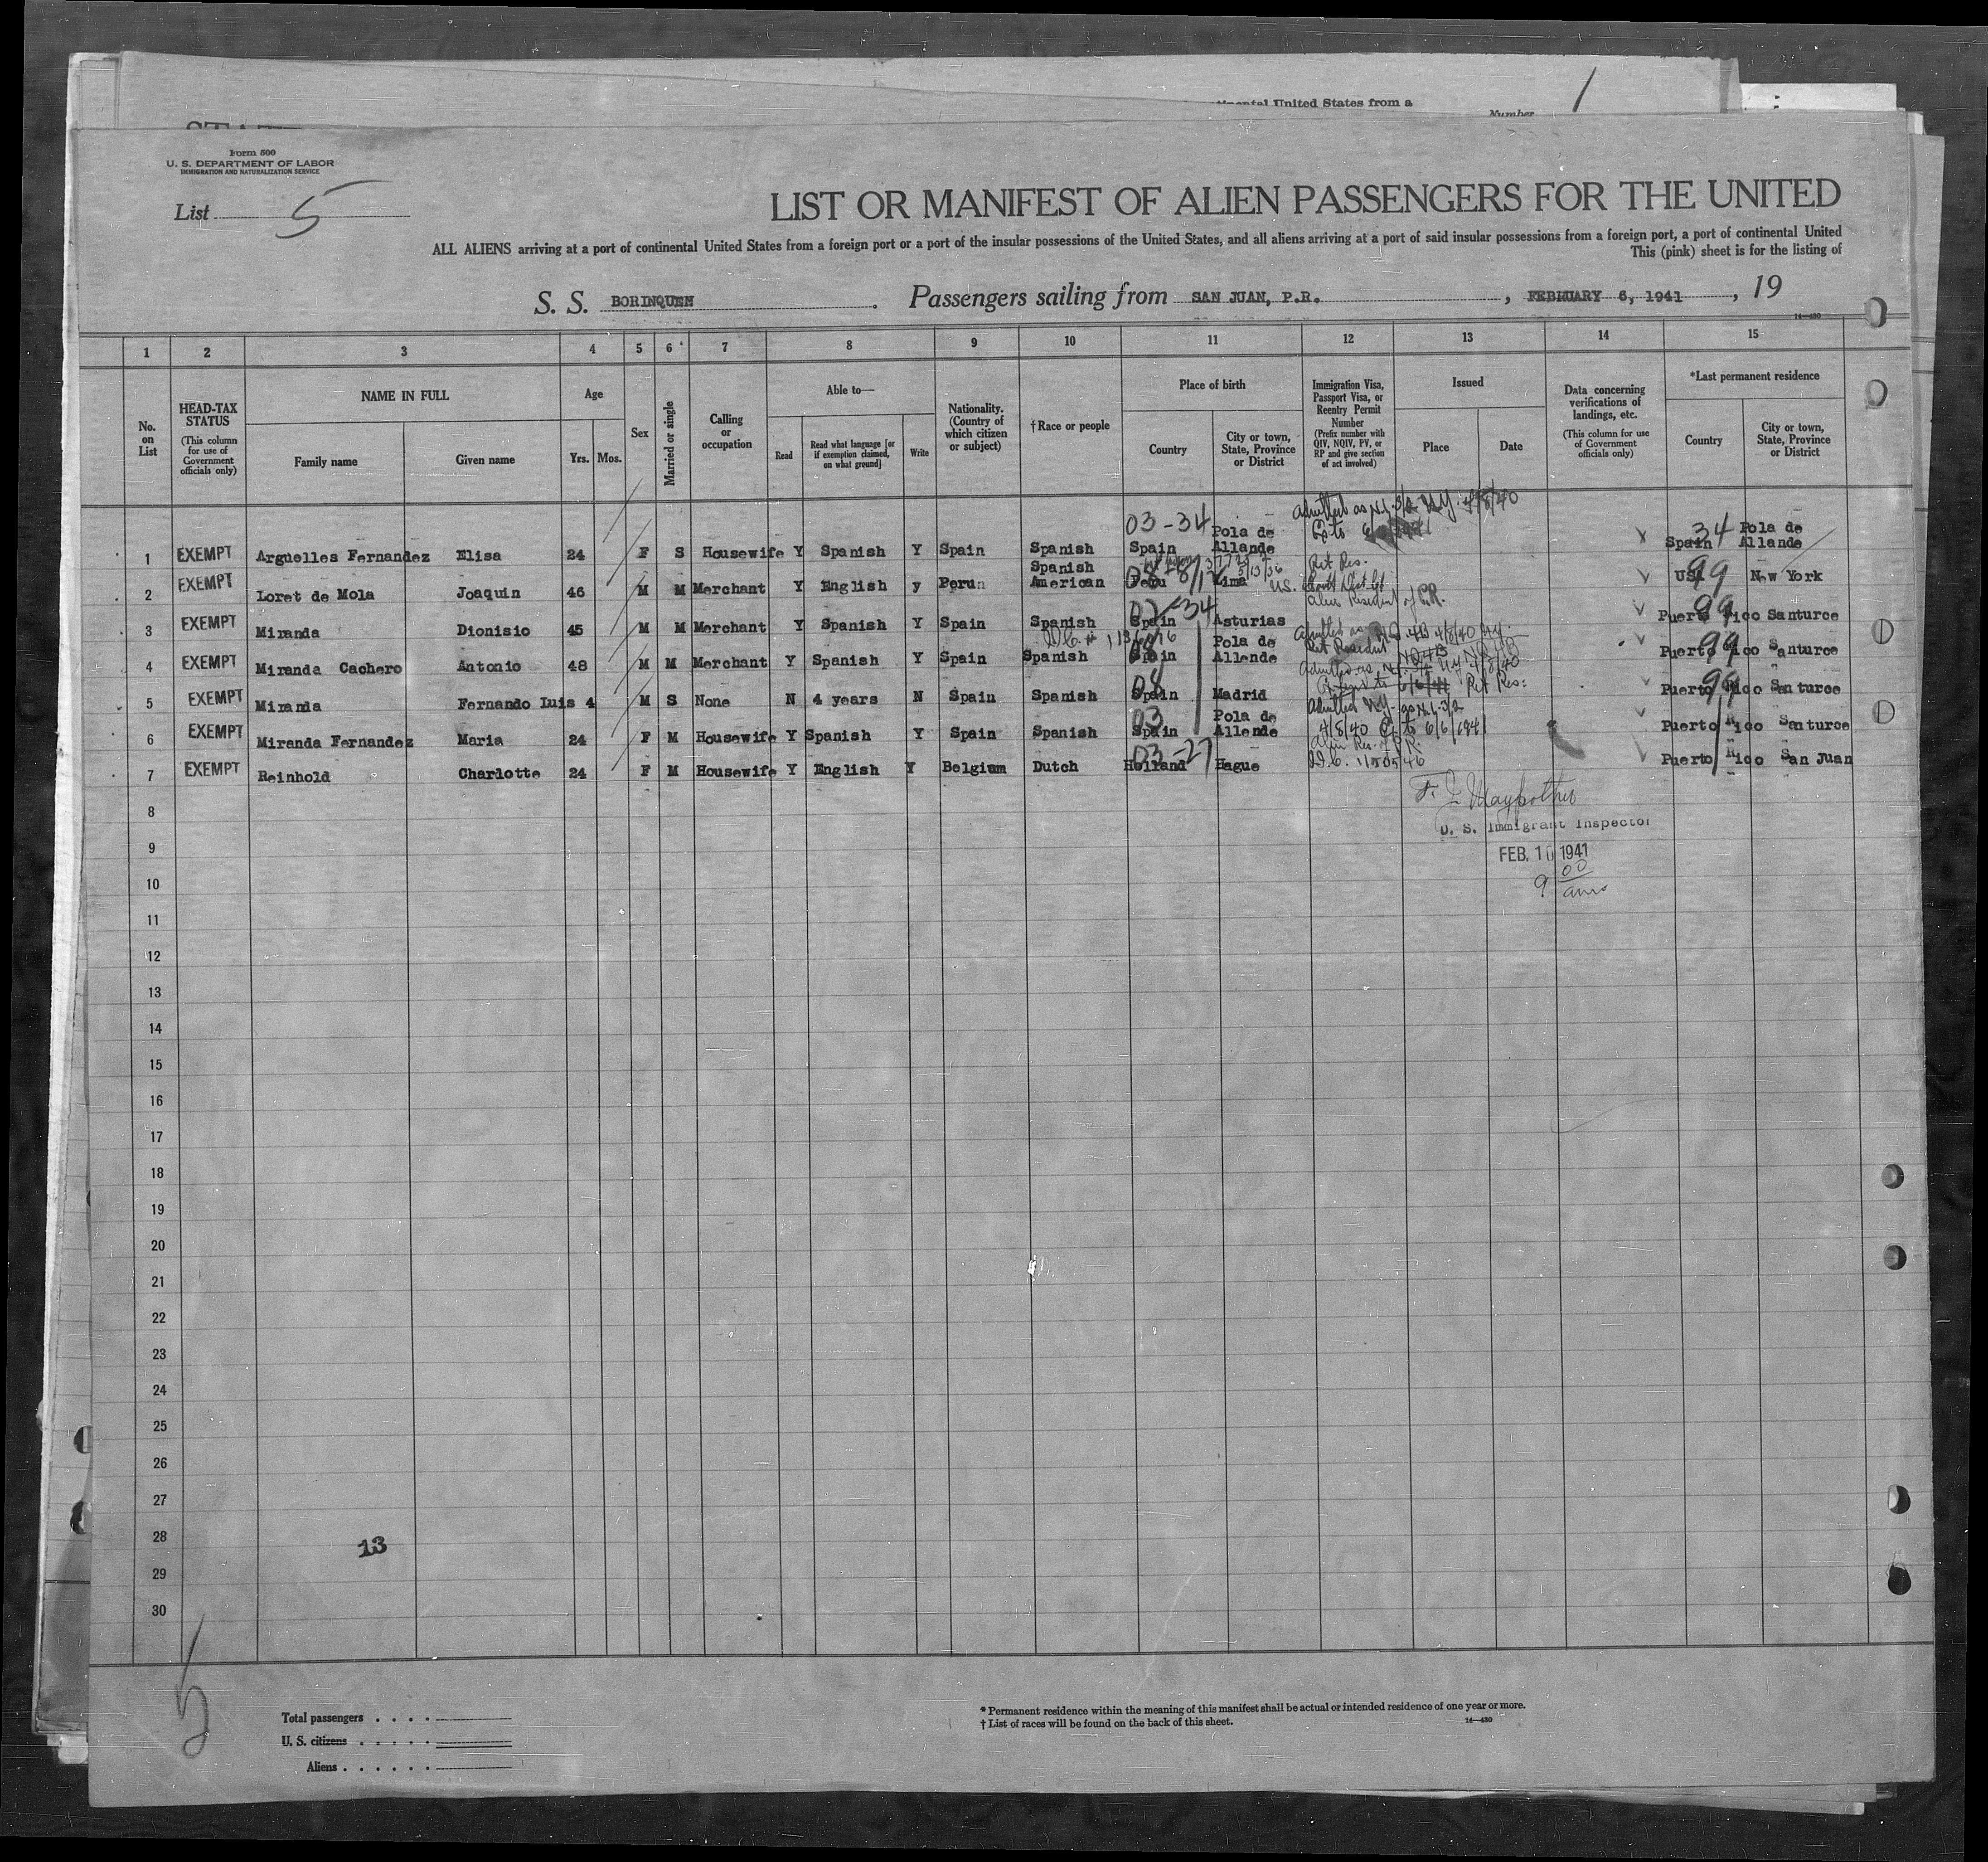 continental United States from a
Number 1
Form 500
U. S. DEPARTMENT OF LABOR
IMMIGRATION AND NATURALIZATION SERVICE
List 5
LIST OR MANIFEST OF ALIEN PASSENGERS FOR THE UNITED
ALL ALIENS arriving at a port of continental United States from a foreign port or a port of the insular possessions of the United States, and all aliens arriving at a port of said insular possessions from a foreign port, a port of continental United
This (pink) sheet is for the listing of
S. S. BORINQUEN. Passengers sailing from SAN JUAN, P.R., FEBRUARY 6, 1941, 19
14—430
1 2 3 4 5 6 7 8 9 10 11 12 13 14 15
No. on List
HEAD-TAX STATUS (This column for use of Government officials only)
NAME IN FULL Family name Given name
Age Yrs. Mos.
Sex
Married or single
Calling or occupation
Able to— Read Read what language [or if exemption claimed, on what ground] Write
Nationality. (Country of which citizen or subject)
†Race or people
Place of birth Country City or town, State, Province or District
Immigration Visa, Passport Visa, or Reentry Permit Number (Prefix number with QIV, NQIV, PV, or RP and give section of act involved)
Issued Place Date
Data concerning verifications of landings, etc. (This column for use of Government officials only)
*Last permanent residence Country City or town, State, Province or District
Admitted as N.I. 3/2 N.Y. 4/8/40
1 EXEMPT Arguelles Fernandez Elisa 24 F S Housewife Y Spanish Y Spain Spanish 03-34 Spain Pola de Allande 34 Spain Pola de Allande
2 EXEMPT Loret de Mola Joaquin 46 M M Merchant Y English y Peru Spanish American Peru Lima Ret Res. 99 USA New York
3 EXEMPT Miranda Dionisio 45 M M Merchant Y Spanish Y Spain Spanish Spain Asturias Alien Resident of P.R. 99 Puerto Rico Santurce
4 EXEMPT Miranda Cachero Antonio 48 M M Merchant Y Spanish Y Spain Spanish Spain Pola de Allende Ret Resident 99 Puerto Rico Santurce
5 EXEMPT Miranda Fernando Luis 4 M S None N 4 years N Spain Spanish 08 Spain Madrid 6/6/41 Ret Res: 99 Puerto Rico Santurce
6 EXEMPT Miranda Fernandez Maria 24 F M Housewife Y Spanish Y Spain Spanish 03 Spain Pola de Allende Admitted N.Y. as N.I. 3/2 4/8/40 6/6/1941 Puerto Rico Santurce
7 EXEMPT Reinhold Charlotte 24 F M Housewife Y English Y Belgium Dutch 03-27 Holland Hague Alien Res. of P.R. Puerto Rico San Juan
8
U. S. Immigrant Inspector
9
FEB. 10 1941
10
9 00 am
11
12
13
14
15
16
17
18
19
20
21
22
23
24
25
26
27
28
13
29
30
5
Total passengers . . . .
U. S. citizens . . . . .
Aliens . . . . . .
*Permanent residence within the meaning of this manifest shall be actual or intended residence of one year or more.
†List of races will be found on the back of this sheet.
14—430